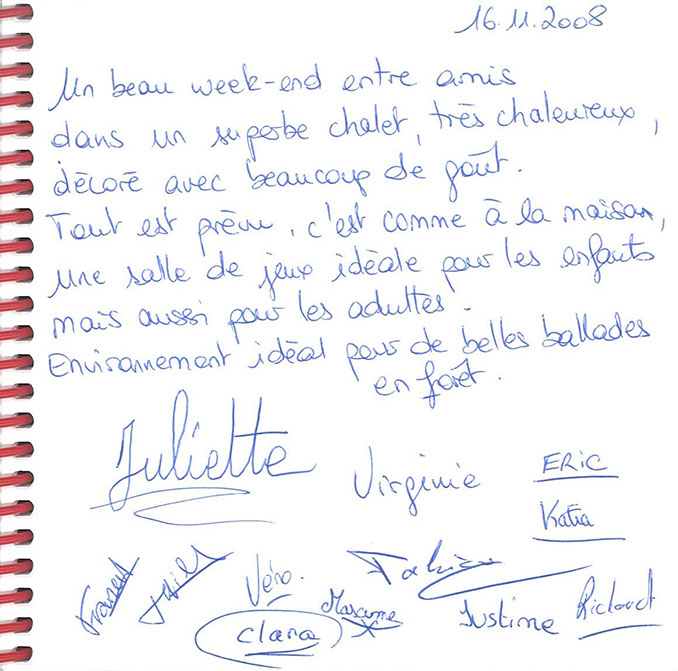 16.11.2008
Un beau week-end entre amis
dans un superbe chalet, très chaleureux,
décoré avec beaucoup de goût.
Tout est prévu, c'est comme à la maison,
une salle de jeux idéale pour les enfants
mais aussi pour les adultes.
Environnement idéal pour de belles ballades
en forêt.
Juliette
Virginie
ERIC
Katia
Véro.
Clara
Maxime
Justine